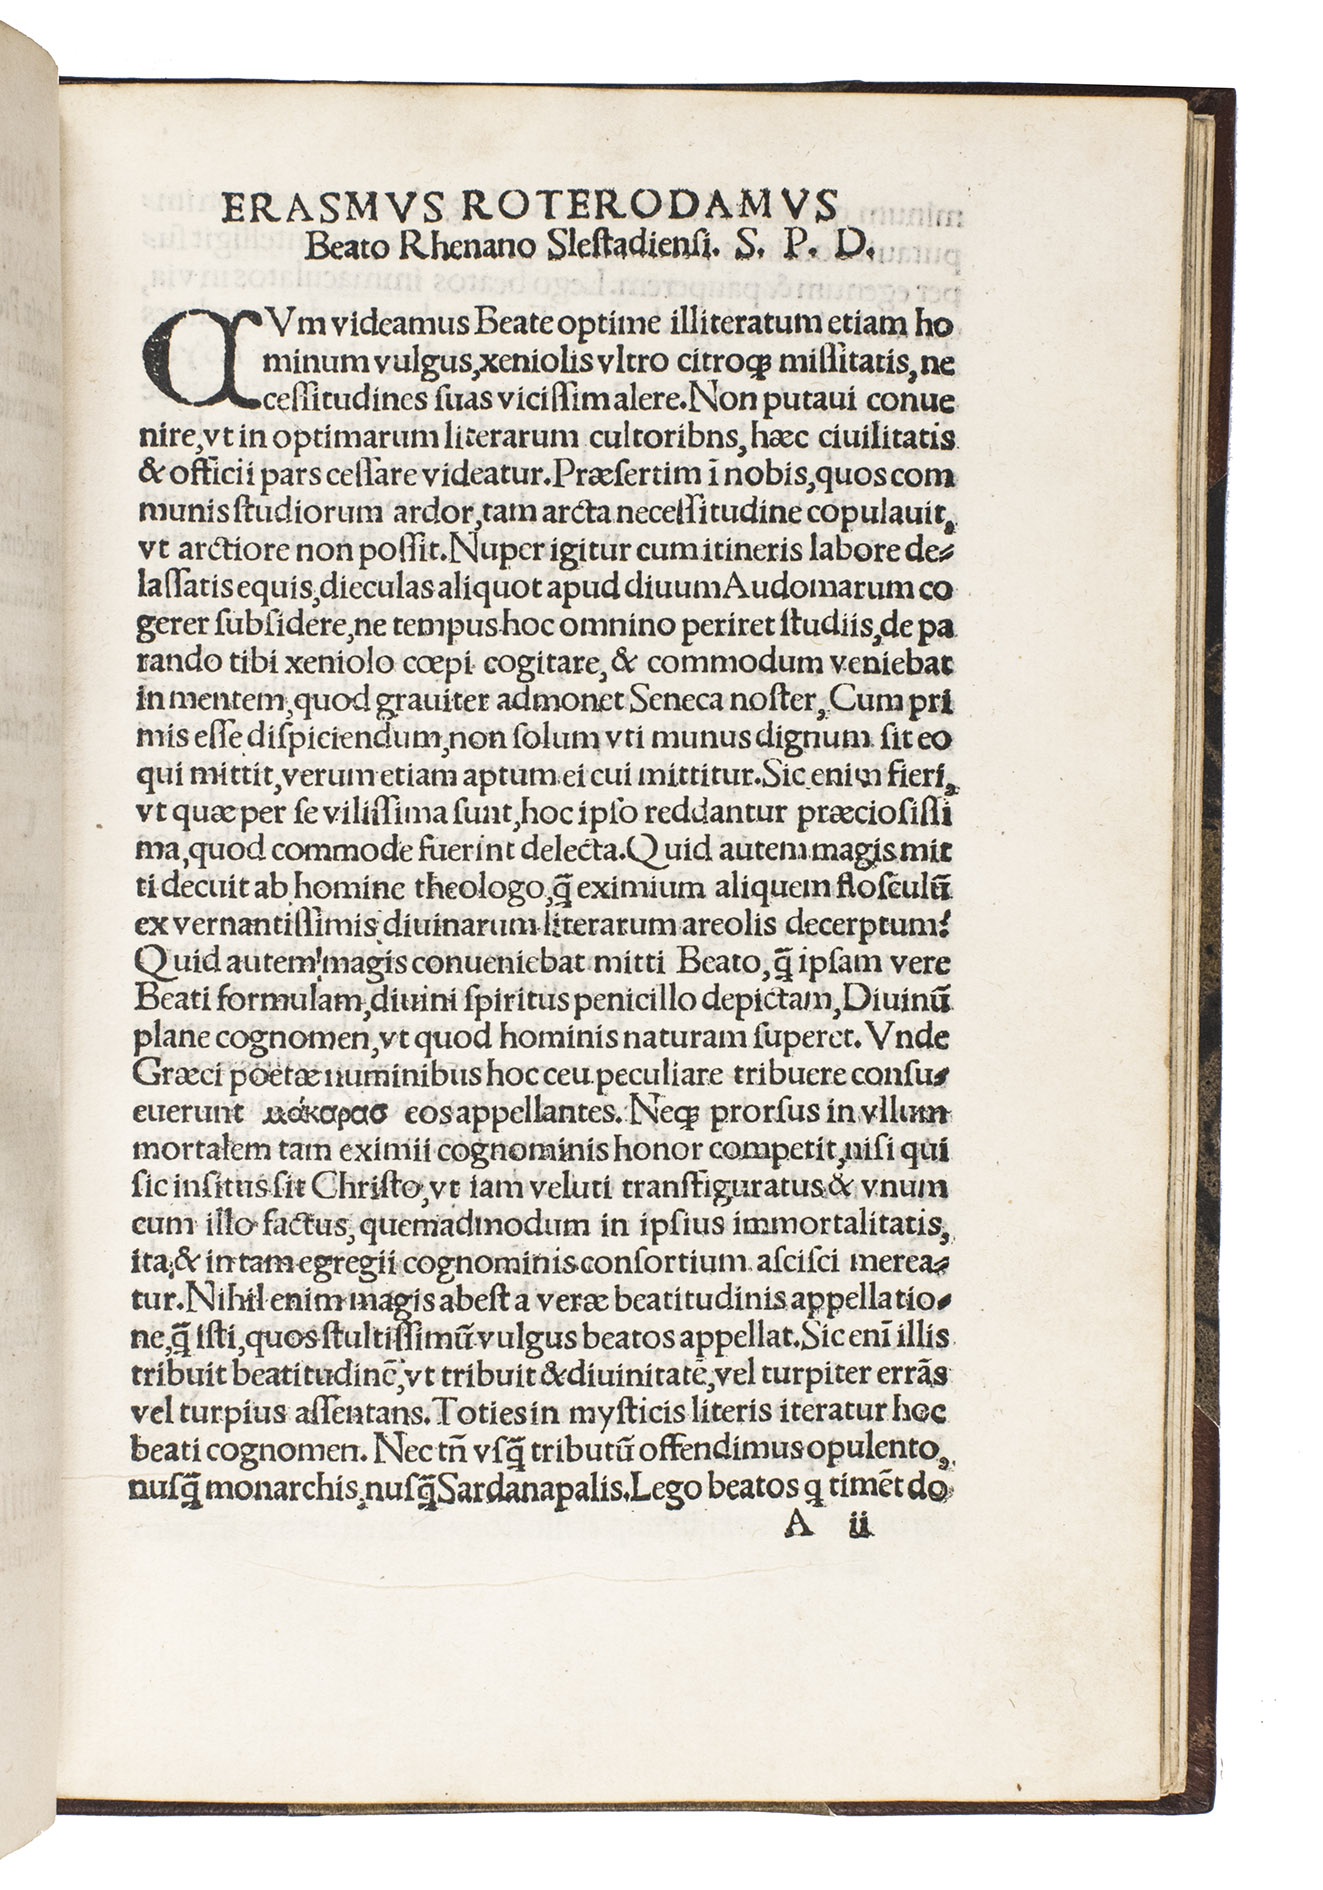 ERASMVS ROTERODAMVS
Beato Rhenano Sleſtadienſi. S. P. D.
CVm videamus Beate optime illiteratum etiam ho
minum vulgus,xeniolis vltro citroqꝫ miſſitatis,ne
ceſſitudines ſuas viciſſim alere.Non putaui conue
nire,vt in optimarum literarum cultoribns,hæc ciuilitatis
& officii pars ceſſare videatur.Præſertim ī nobis,quos com
munis ſtudiorum ardor,tam arcta neceſſitudine copulauit,
vt arctiore non poſſit.Nuper igitur cum itineris labore de⸗
laſſatis equis,dieculas aliquot apud diuum Audomarum co
gerer ſubſidere,ne tempus hoc omnino periret ſtudiis,de pa
rando tibi xeniolo cœpi cogitare,& commodum veniebat
in mentem,quod grauiter admonet Seneca noſter,Cum pri
mis eſſe diſpiciendum,non ſolum vti munus dignum ſit eo
qui mittit,verum etiam aptum ei cui mittitur.Sic enim fieri,
vt quæ per ſe viliſſima ſunt,hoc ipſo reddantur præcioſiſſi
ma,quod commode fuerint delecta.Quid autem magis mit
ti decuit ab homine theologo,q̄ eximium aliquem floſculū
ex vernantiſſimis diuinarum literarum areolis decerptum?
Quid autem magis conueniebat mitti Beato,q̄ ipſam vere
Beati formulam,diuini ſpiritus penicillo depictam,Diuinū
plane cognomen,vt quod hominis naturam ſuperet. Vnde
Græci poetæ numinibus hoc ceu peculiare tribuere conſu⸗
euerunt μάκαρασ eos appellantes. Neqꝫ prorſus in vllum
mortalem tam eximii cognominis honor competit,niſi qui
ſic inſitus ſit Chriſto,vt iam veluti tranſfiguratus & vnum
cum illo factus, quemadmodum in ipſius immortalitatis,
ita,& in tam egregii cognominis conſortium aſciſci merea⸗
tur.Nihil enim magis abeſt a veræ beatitudinis appellatio⸗
ne,q̄ iſti,quos ſtultiſſimū vulgus beatos appellat.Sic enī illis
tribuit beatitudinē,vt tribuit & diuinitatē,vel turpiter errās
vel turpius aſſentans.Toties in myſticis literis iteratur hoc
beati cognomen. Nec tñ vſq̄ tributū offendimus opulento,
nuſq̄ monarchis,nuſq̄ Sardanapalis.Lego beatos q timēt do
A ii